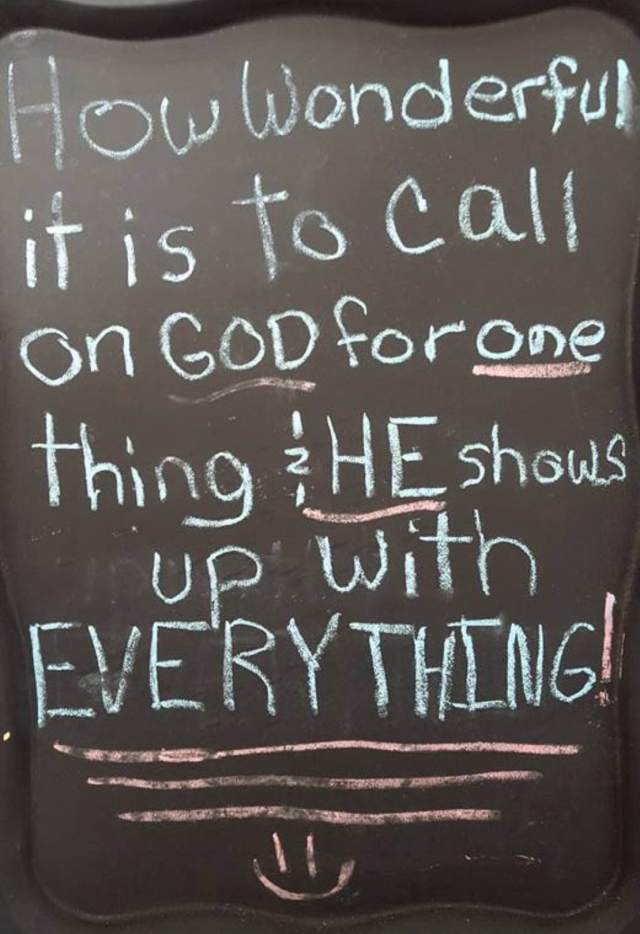 How Wonderful
it is to call
on GOD for one
thing & HE shows
up with
EVERYTHING!